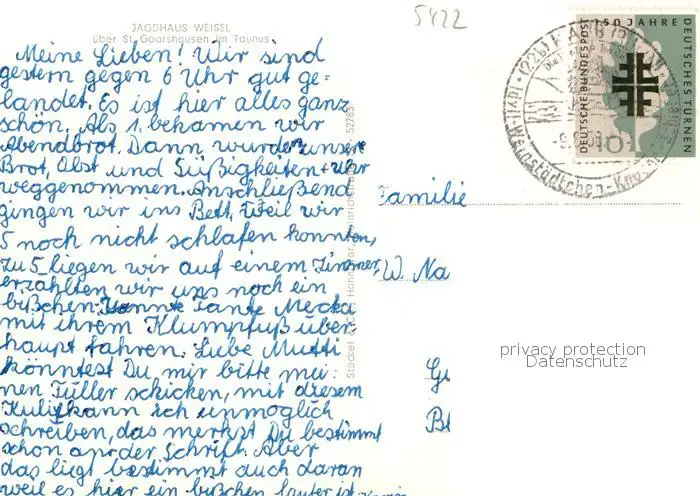 5422
JAGDHAUS WEISEL
über St. Goarshausen im Taunus
Meine Lieben! Wir sind
gestern gegen 6 Uhr gut ge-
landet. Es ist hier alles ganz
schön. Als 1. bekamen wir
Abendbrot. Dann wurden unsere
Brot, Obst und Süßigkeiten + Uhr
weggenommen. Anschließend
gingen wir ins Bett. Weil wir
5 noch nicht schlafen konnten,
zu 5 liegen wir auf einem Zimmer,
erzählten wir uns noch ein
bißchen. Konnte Tante Mecka
mit ihrem Klumpfuß über-
haupt fahren. Liebe Mutti
könntest Du mir bitte mei-
nen Füller schicken, mit diesem
Kuli kann ich unmöglich
schreiben, das merkst Du bestimmt
schon an der Schrift. Aber
das liegt bestimmt auch daran
weil es hier ein bißchen lauter ist
Familie
W. Na
privacy protection
Datenschutz
150 JAHRE
DEUTSCHES TURNEN
DEUTSCHE BUNDESPOST
10